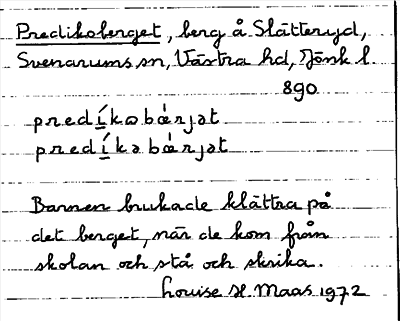 Predikoberget, berg å Slätteryd,
Svenarums sn, Västra hd, Jönk l.
890
predíkɷbærjət
predíkəbærjət
Barnen brukade klättra på
det berget, när de kom från
skolan och stå och skrika.
Louise H. Maas 1972